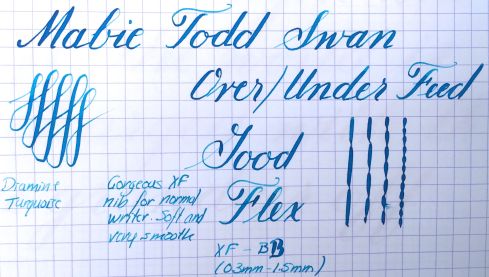 Mabie Todd Swan
Over/Under Feed
Good
Flex
Diamine
Turquoise
Gorgeous XF
nib for normal
writer. Soft and
very smooth
XF - BB
(0.3mm - 1.5mm)